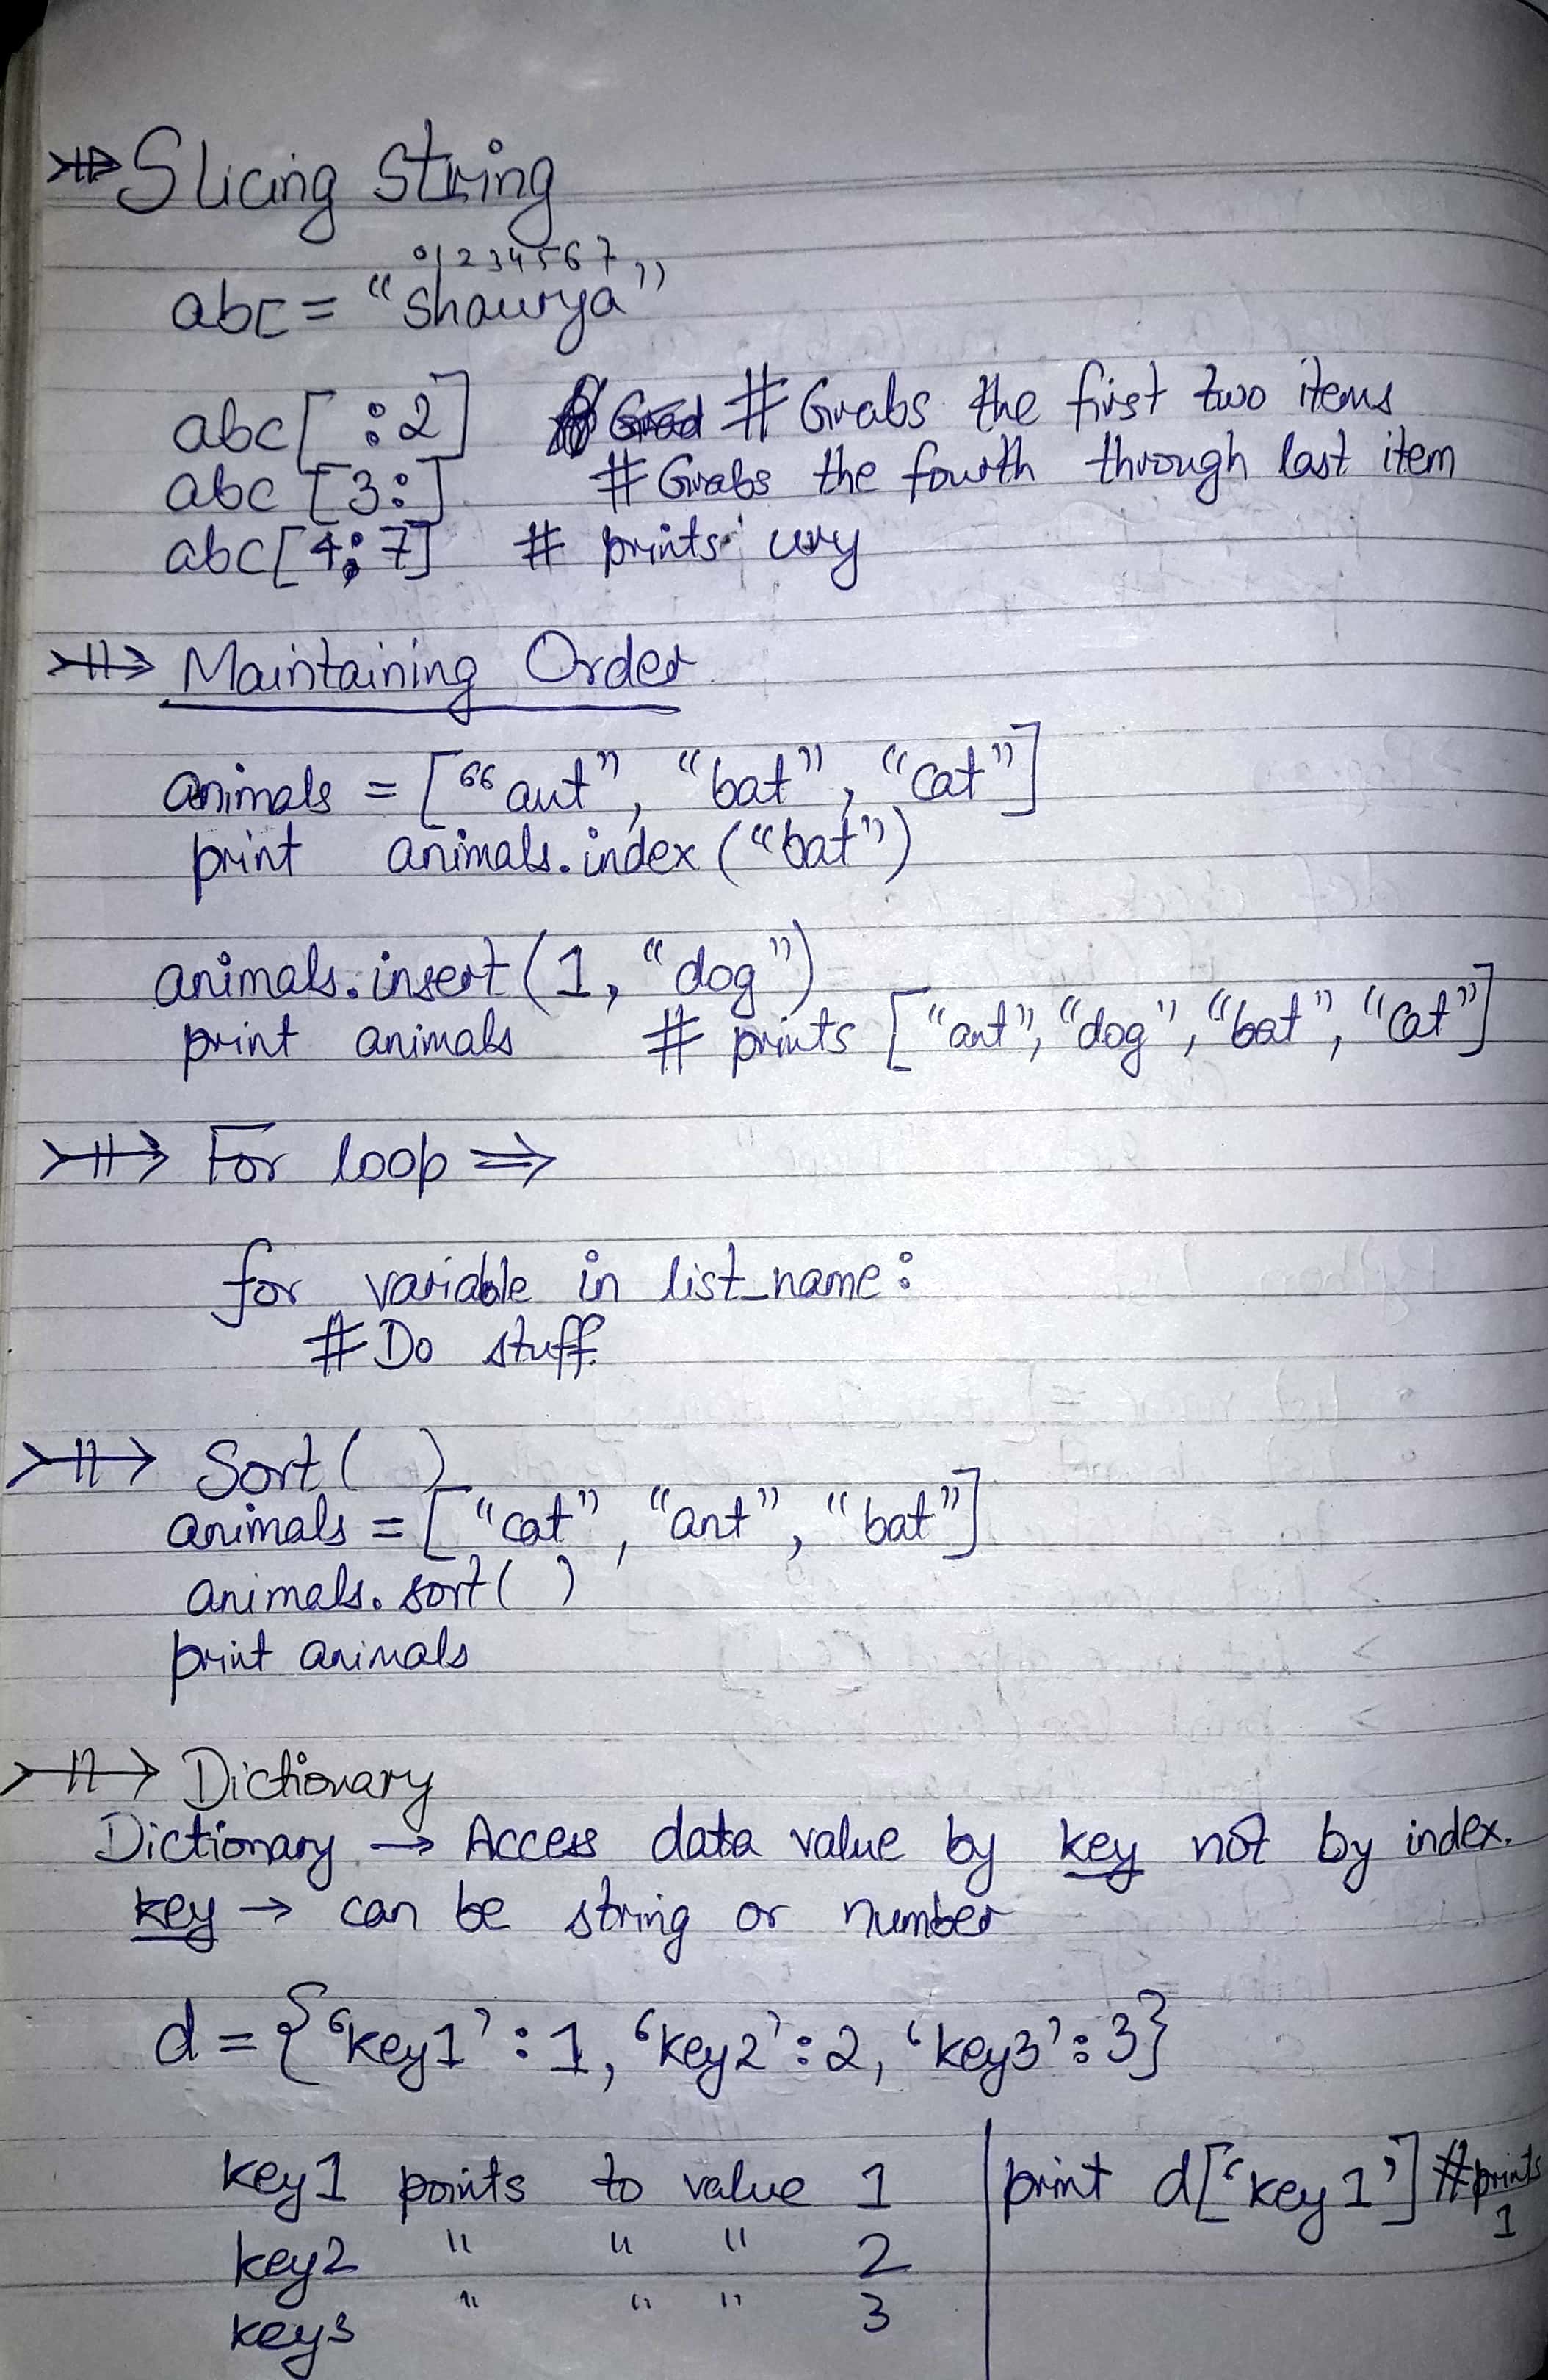 Slicing String
0 1 2 3 4 5 6 7
abc = "shaurya"
abc[ :2] # Grabs the first two items
abc [3:] # Grabs the fourth through last item
abc[4:7] # prints ury
Maintaining Order
animals = ["ant", "bat", "cat"]
print animals.index("bat")
animals.insert(1, "dog")
print animals # prints ["ant", "dog", "bat", "cat"]
For loop ⇒
for variable in list_name:
#Do stuff.
Sort( )
animals = ["cat", "ant", "bat"]
animals.sort( )
print animals
Dictionary
Dictionary → Access data value by key not by index.
key → can be string or number
d = {'key1' : 1, 'key2' : 2, 'key3' : 3}
key1 points to value 1 | print d['key1'] #prints 1
key2 " " " 2
key3 " " " 3